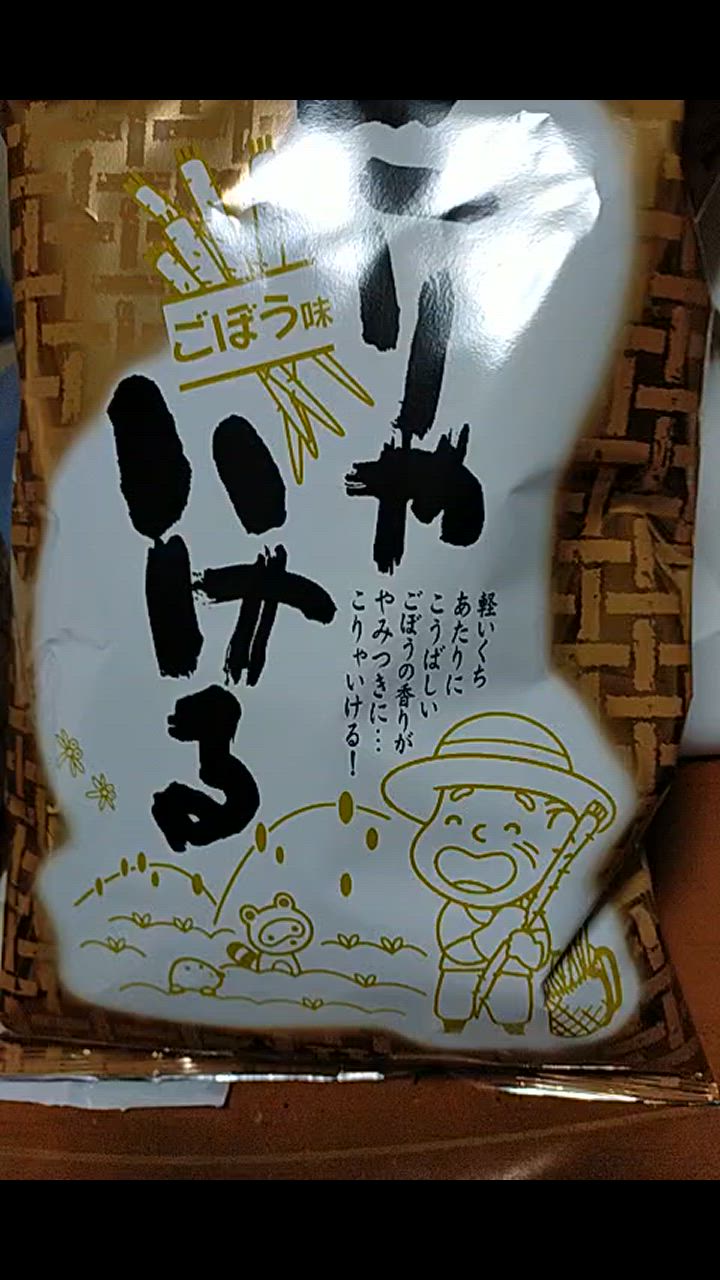 こりゃ
いける
ごぼう味
軽いくち
あたりに
こうばしい
ごぼうの香りが
やみつきに…
こりゃいける!